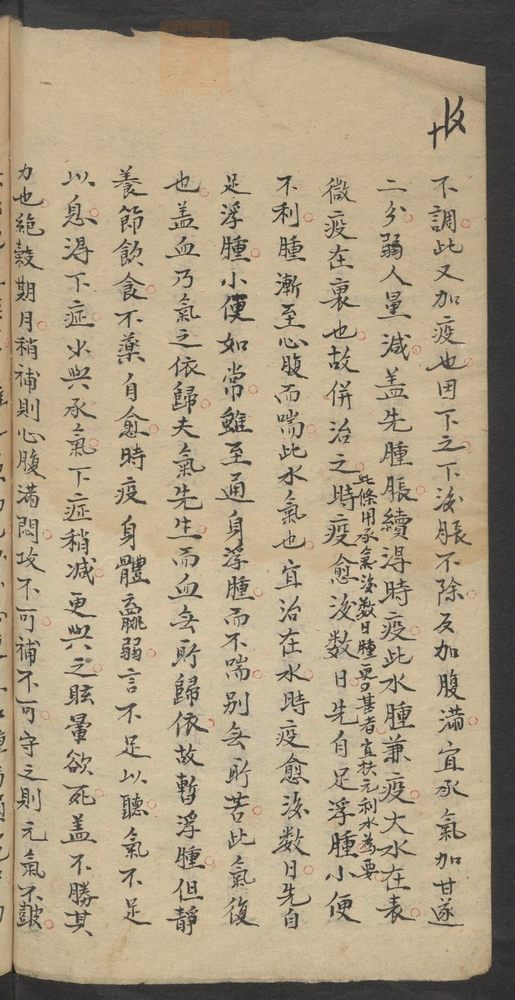 不調此又加疫也因下之下後脹不除反加腹滿宜承氣加甘遂
二分弱人量減盖先腫脹續得時疫此水腫兼疫大水在表
微疫在裏也故併治之
此條用承氣後数日腫更甚者宜扶元利水為要
時疫愈後数日先自足浮腫小便
不利腫漸至心腹而喘此水氣也宜治在水時疫愈後数日先自
足浮腫小便如常雖至通身浮腫而不喘别無所苦此氣復
也盖血乃氣之依歸夫氣先生而血無所歸依故暫浮腫但靜
養節飲食不藥自愈時疫身體羸弱言不足以聽氣不足
以息得下症少與承氣下症稍减更與之眩暈欲死盖不勝其
力也絶穀期月稍補則心腹滿悶攻不可補不可守之則元氣不鼓